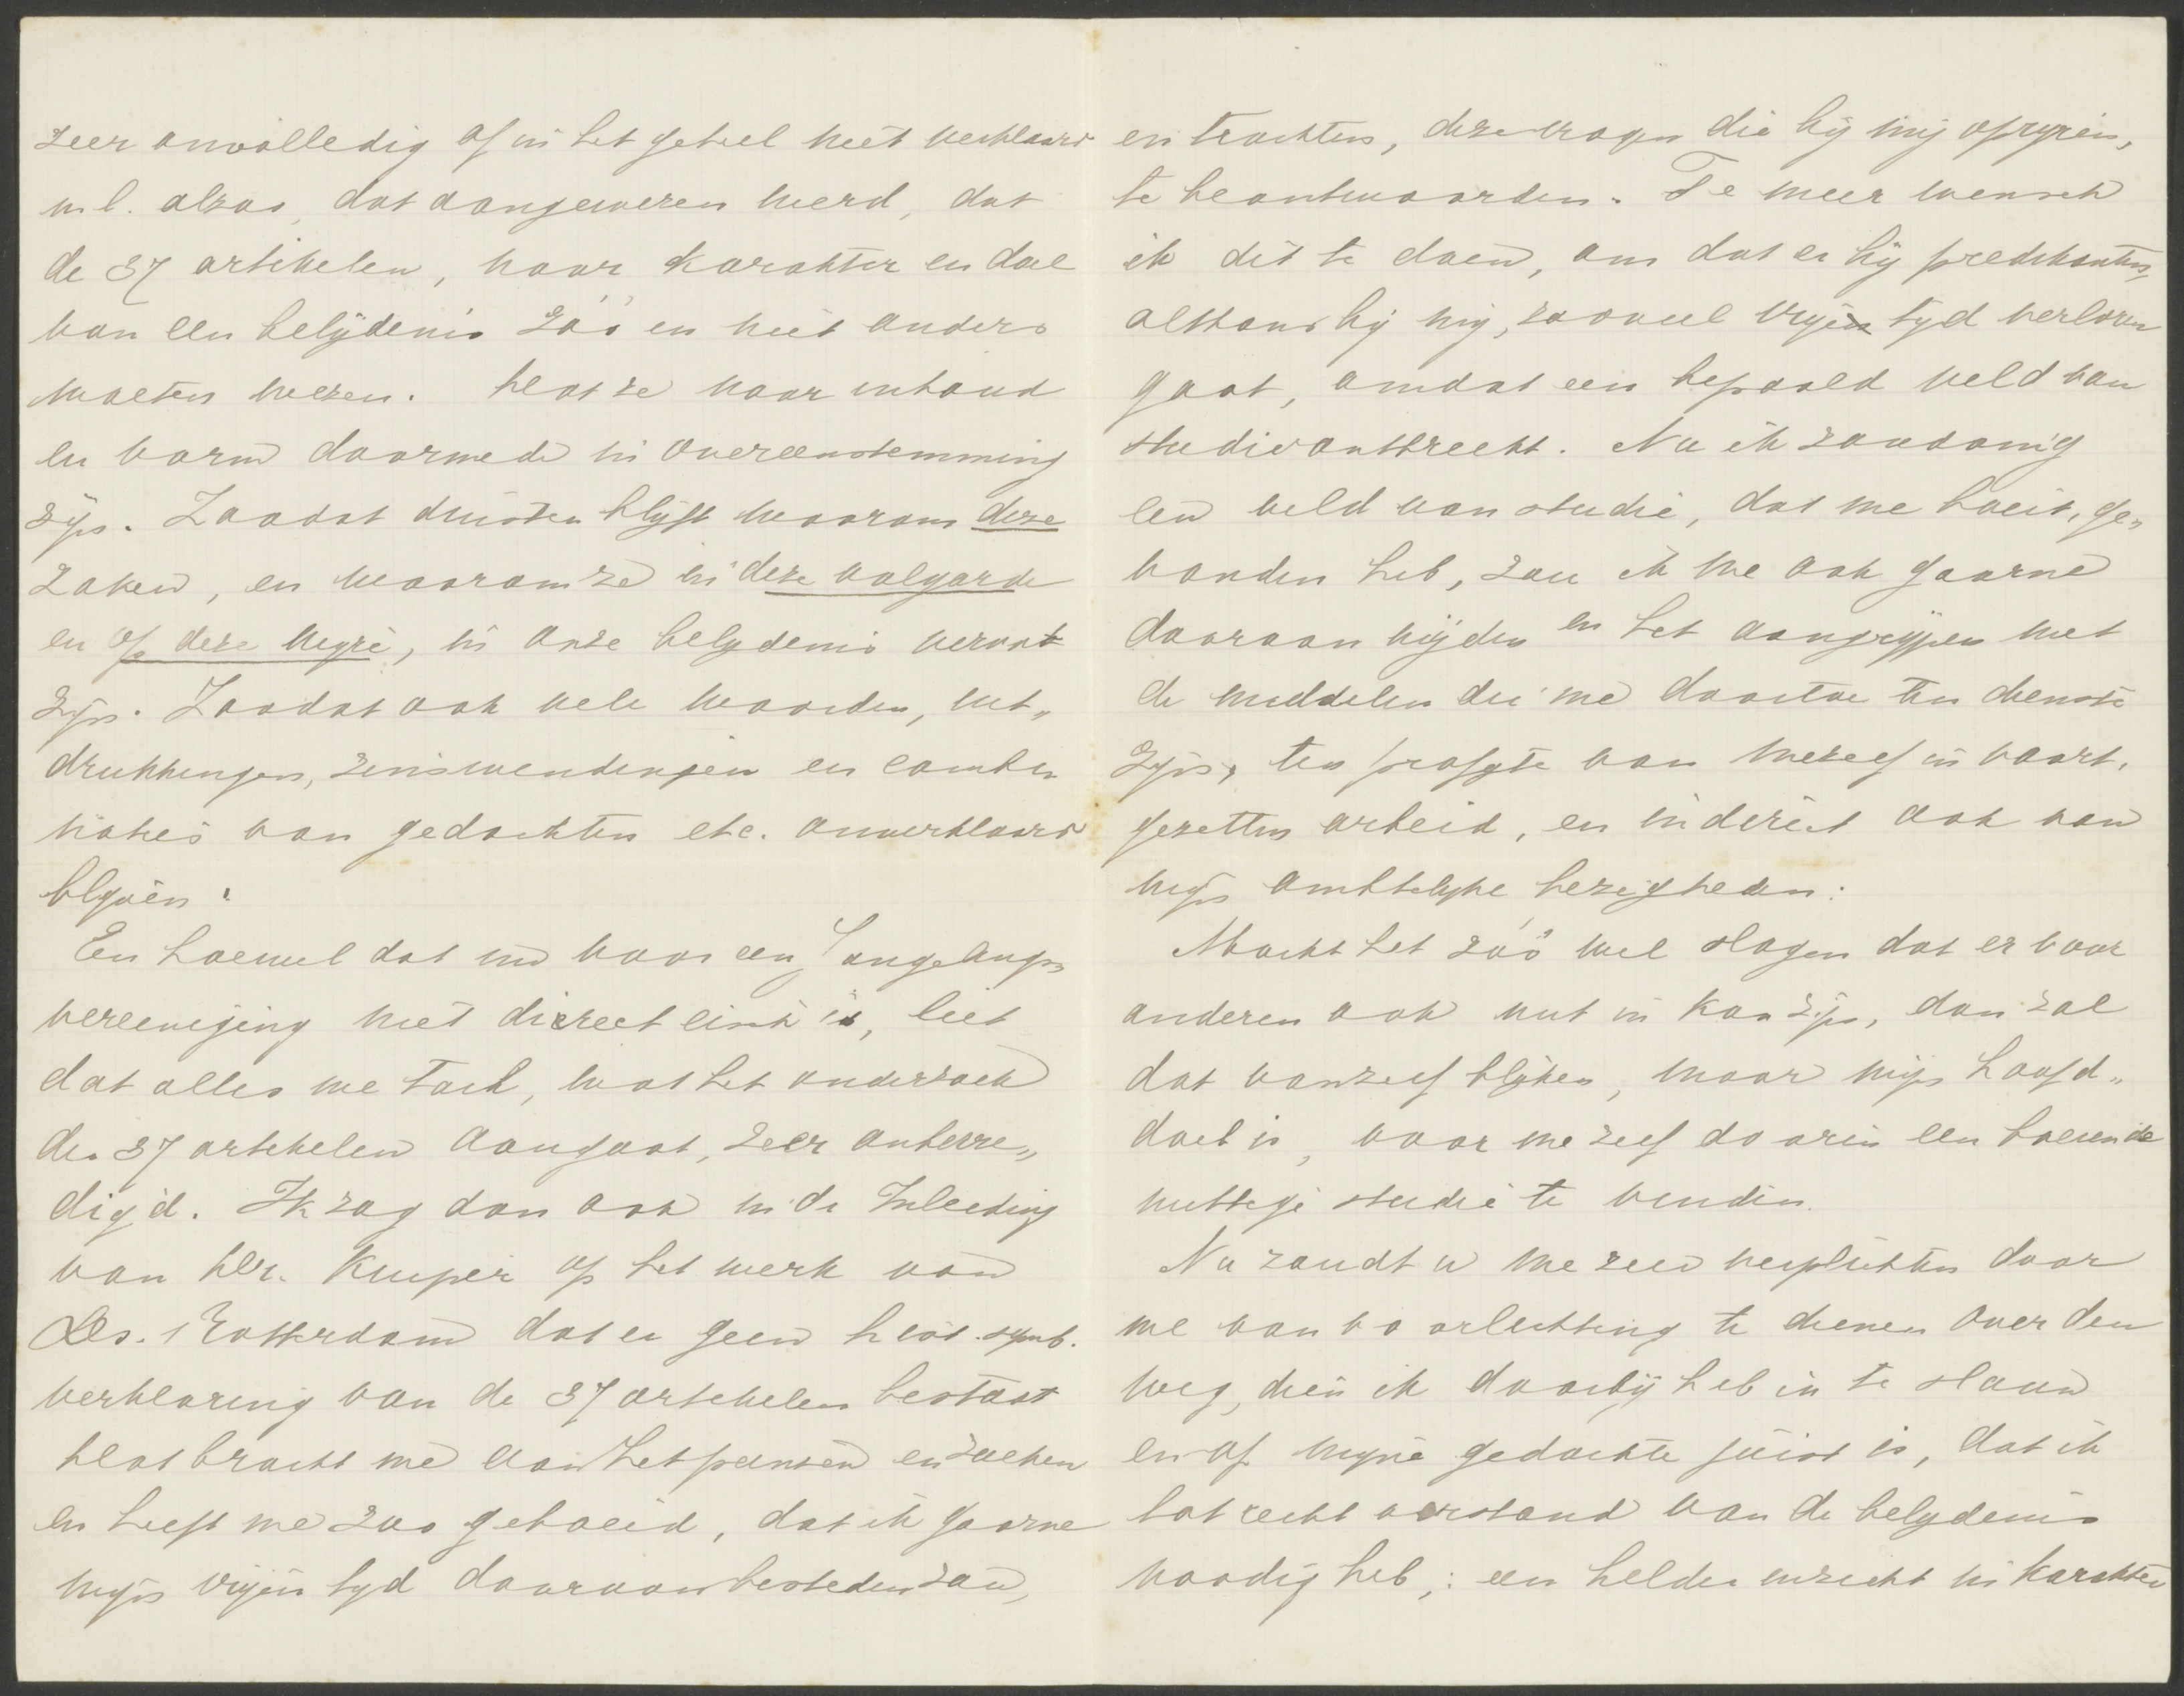 zeer onvolledig of in het geheel niet verklaard
n.l. alzoo, dat aangewezen werd, dat
de 37 artikelen, naar karakter en doel
van een belijdenis zóó en niet anders
moeten wezen. Wat ze naar inhoud
en vorm daarmede in overeenstemming
zijn. Zoodat duister blijft waarom deze
zaken, en waarom ze in deze volgorde
en op deze wijze, in onze belydenis vervat
zijn. Zoodat ook vele woorden, uit„
drukkingen, zinswendingen en combi
naties van gedachten etc. onverklaard
blyven.
En hoewel dat nu voor een Jongelings
vereeniging niet direct eisch is, liet
dat alles me toch, wat het onderzoek
der 37 artikelen aangaat, zeer onbevre„
digd. Ik zag dan ook in de Inleiding
van Dr. Kuyper op het werk van
Ds. v Rotterdam dat er geen hist. symb.
verklaring van de 37 artikelen bestaat
Dat bracht me aan het peinzen en zoeken
en heeft me zoo geboeid, dat ik gaarne
myn vrijen tyd daaraan besteden zou,
en trachten, deze vragen die bij mij oprijzen,
te beantwoorden. Te meer wensch
ik dit te doen, om dat er bij predikanten,
althans bij mij, zooveel vrije tyd verloren
gaat, omdat een bepaald veld van
studie ontbreekt. Nu ik zoodanig
een veld van studie, dat me boeit, ge„
vonden heb, zou ik me ook gaarne
daaraan wijden en het aangrijpen met
de middelen die me daartoe ten dienste
zijn, ten profijte van mezelf in voort„
gezetten arbeid, en indirect ook van
mijn ambtelyke bezigheden.
Mocht het zóó wel slagen dat er voor
anderen ook nut in kan zijn, dan zal
dat vanzelf blijken, maar mijn hoofd„
doel is, voor me zelf daarin een boeiende
nuttige studie te vinden.
Nu zoudt u me zeer verplichten door
me van voorlichting te dienen over den
weg, dien ik daarbij heb in te slaan
en of mijne gedachte juist is, dat ik
tot recht verstand van de belydenis
noodig heb,: een helder inzicht in karakter